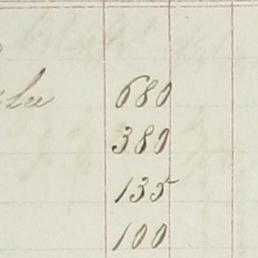 680
380
135
100